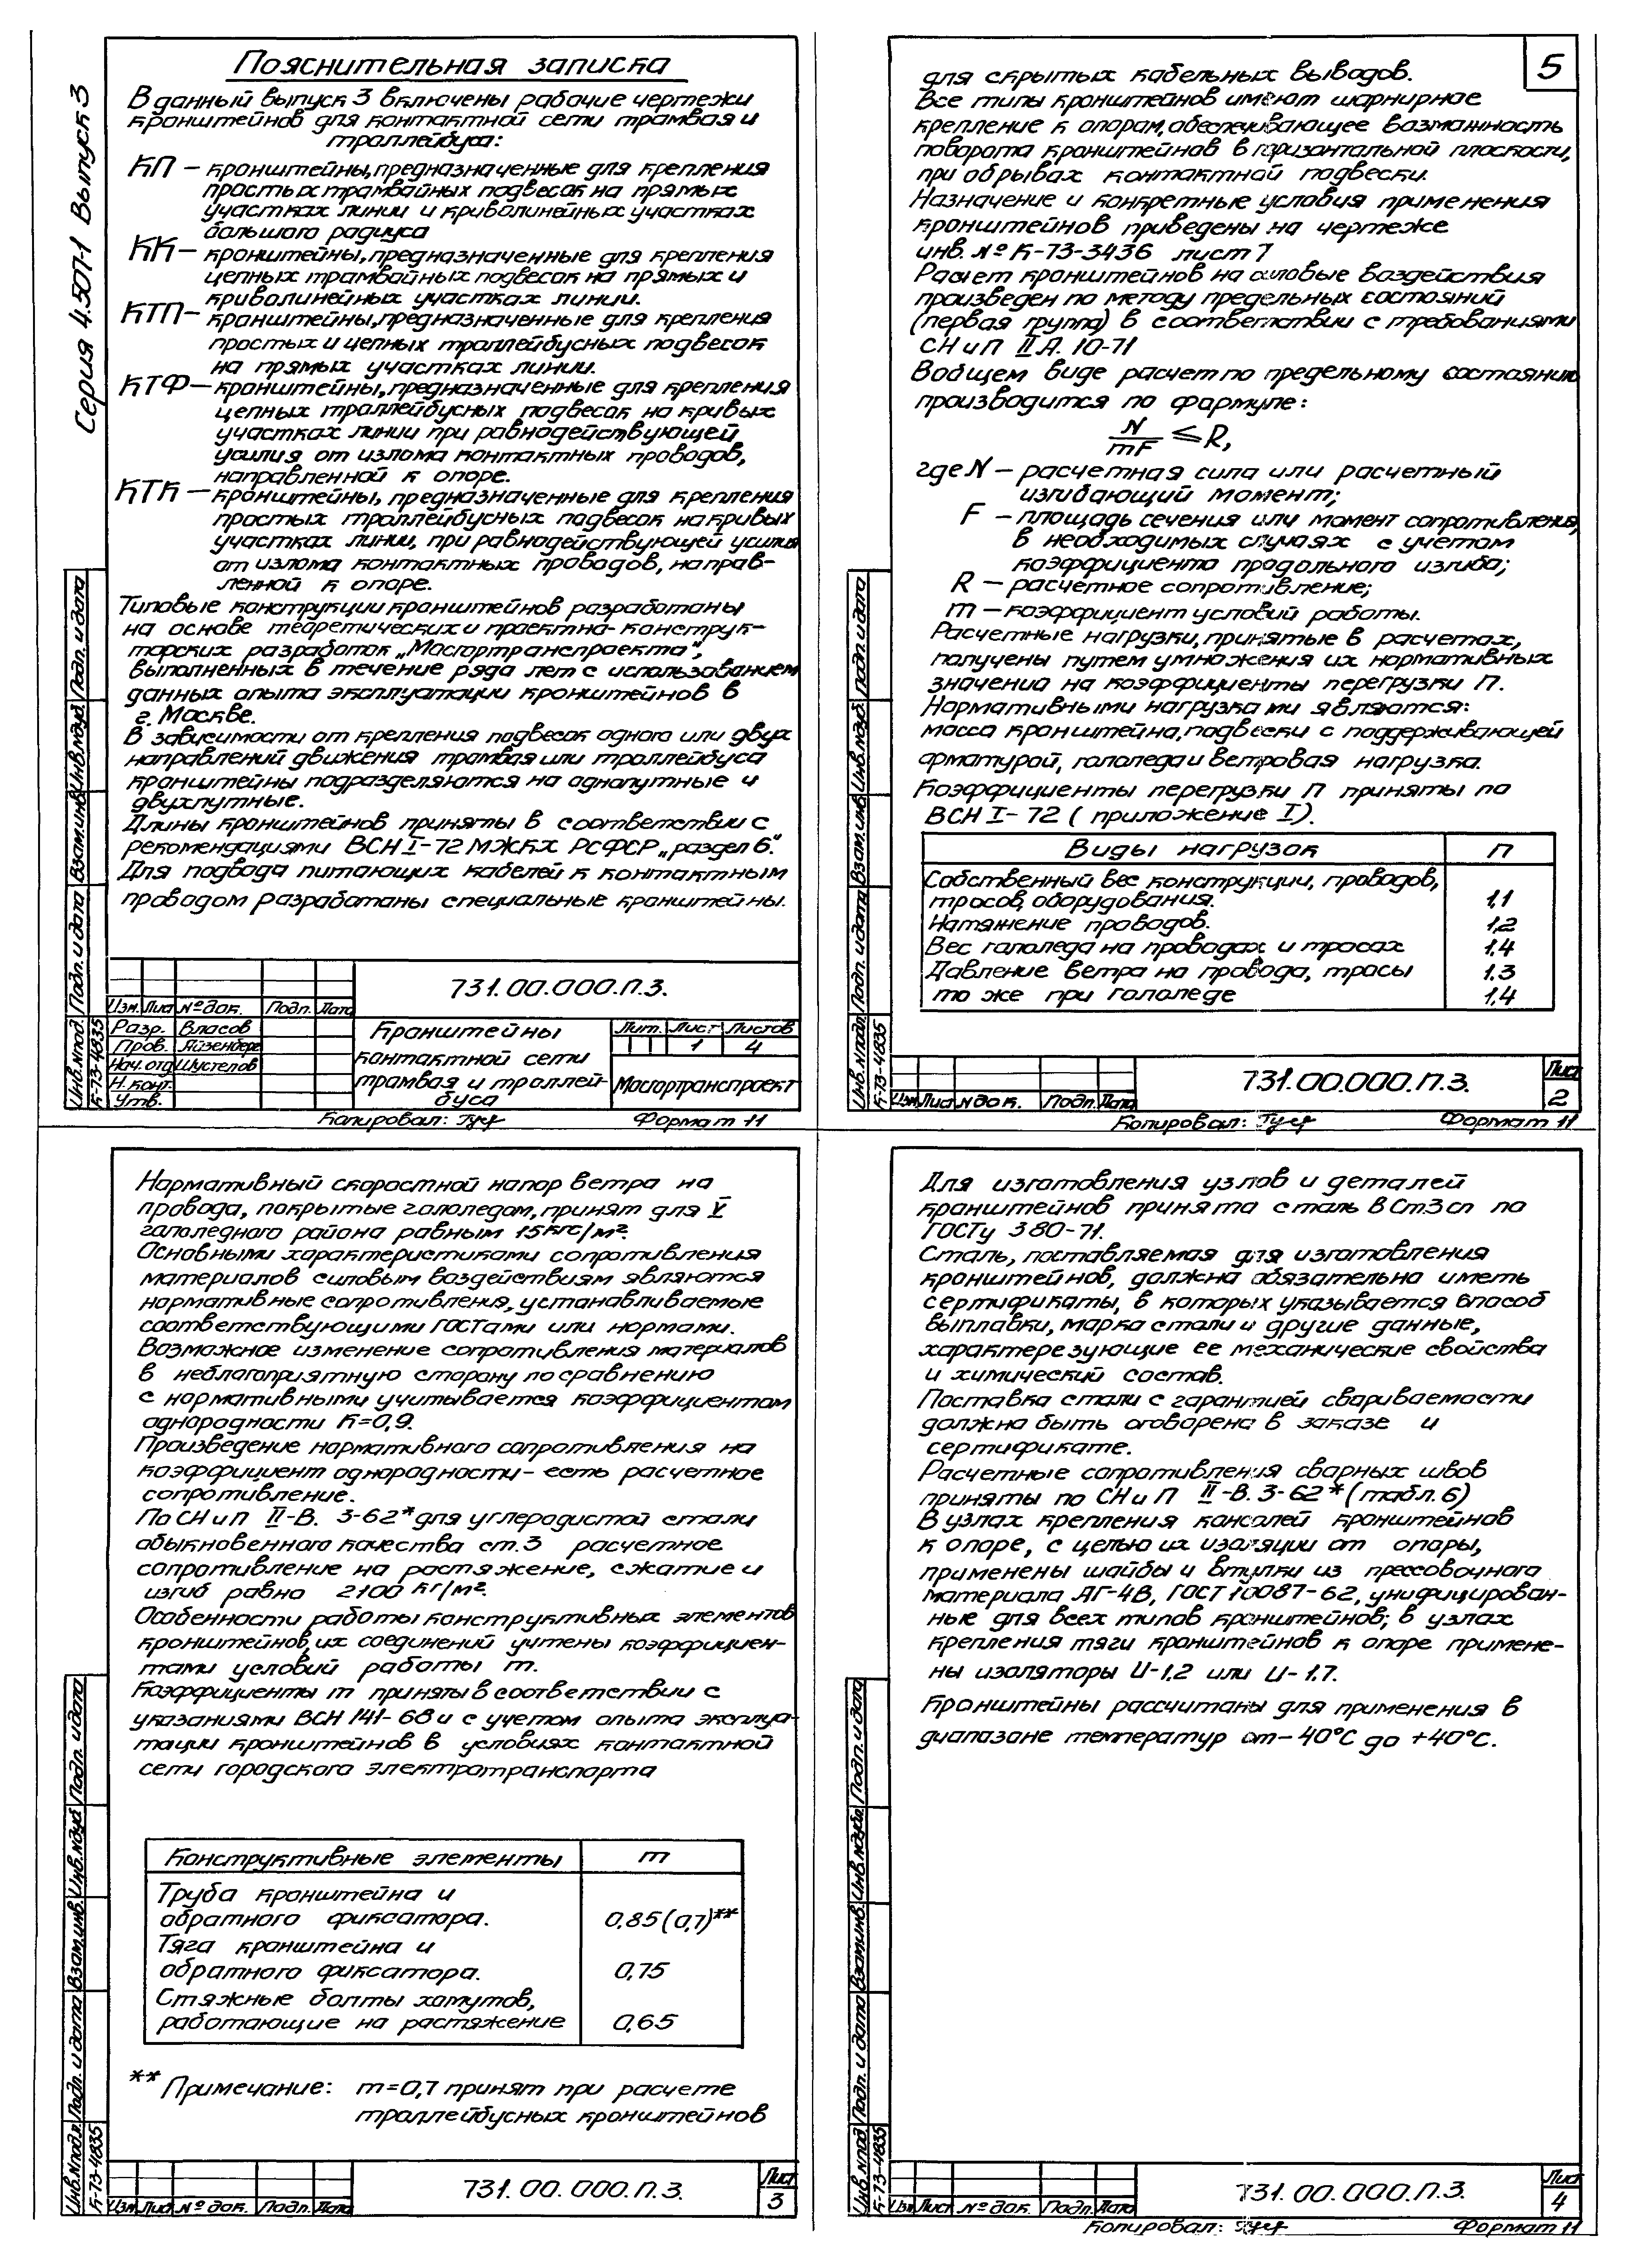 Серия 4.507-1 Выпуск 3
Пояснительная записка
В данный выпуск 3 включены рабочие чертежи
кронштейнов для контактной сети трамвая и
троллейбуса:
КП – кронштейны, предназначенные для крепления
простых трамвайных подвесок на прямых
участках линии и криволинейных участках
большого радиуса
КК – кронштейны, предназначенные для крепления
цепных трамвайных подвесок на прямых и
криволинейных участках линии.
КТП – кронштейны, предназначенные для крепления
простых и цепных троллейбусных подвесок
на прямых участках линии.
КТФ – кронштейны, предназначенные для крепления
цепных троллейбусных подвесок на кривых
участках линии при равнодействующей
усилия от излома контактных проводов,
направленной к опоре.
КТК – кронштейны, предназначенные для крепления
простых троллейбусных подвесок на кривых
участках линии, при равнодействующей усилия
от излома контактных проводов, направ-
ленной к опоре.
Типовые конструкции кронштейнов разработаны
на основе теоретических и проектно-конструк-
торских разработок „Мосгортранспроекта",
выполненных в течение ряда лет с использованием
данных опыта эксплуатации кронштейнов в
г. Москве.
В зависимости от крепления подвесок одного или двух
направлений движения трамвая или троллейбуса
кронштейны подразделяются на однопутные и
двухпутные.
Длины кронштейнов приняты в соответствии с
рекомендациями ВСН I-72 МЖКХ РСФСР „раздел 6".
Для подвода питающих кабелей к контактным
проводом разработаны специальные кронштейны.
731.00.000.П.З.
Изм. Лист № док. Подп. Дата
Разр. Власов
Пров. Айзенберг
Нач. отд Шустелов
Н. конт.
Утв.
Кронштейны
контактной сети
трамвая и троллей-
буса
Лит. Лист Листов
1 4
Мосгортранспроект
Инв. № подл. Подп. и дата Взам. инв. Инв. № дуб. Подп. и дата
К-73-4835
Копировал: Формат 11
5
для скрытых кабельных выводов.
Все типы кронштейнов имеют шарнирное
крепление к опорам, обеспечивающее возможность
поворота кронштейнов в горизонтальной плоскости,
при обрывах контактной подвески.
Назначение и конкретные условия применения
кронштейнов приведены на чертеже
инв. № К-73-3436 лист 7
Расчет кронштейнов на силовые воздействия
произведен по методу предельных состояний
(первая группа) в соответствии с требованиями
СН и П II.А. 10-71
В общем виде расчет по предельному состоянию
производится по формуле:
N/mF ≤ R,
где N – расчетная сила или расчетный
изгибающий момент;
F – площадь сечения или момент сопротивления,
в необходимых случаях с учетом
коэффициента продольного изгиба;
R – расчетное сопротивление;
m – коэффициент условий работы.
Расчетные нагрузки, принятые в расчетах,
получены путем умножения их нормативных
значений на коэффициенты перегрузки П.
Нормативными нагрузками являются:
масса кронштейна, подвески с поддерживающей
арматурой, гололеда и ветровая нагрузка.
Коэффициенты перегрузки П приняты по
ВСН I-72 (приложение I).
Виды нагрузок п
Собственный вес конструкции, проводов,
тросов, оборудования. 1,1
Натяжение проводов. 1,2
Вес гололеда на проводах и тросах 1,4
Давление ветра на провода, тросы 1.3
то же при гололеде 1,4
731.00.000.П.З.
Лист
2
Изм Лист № док. Подп. Дата
Инв. № подл Подп. и дата Взам. инв Инв. № дуб. Подп. и дата
К-73-4835
Копировал: Формат 11
Нормативный скоростной напор ветра на
провода, покрытые гололедом, принят для V
гололедного района равным 15 кгс/м².
Основными характеристиками сопротивления
материалов силовым воздействиям являются
нормативные сопротивления, устанавливаемые
соответствующими ГОСТами или нормами.
Возможное изменение сопротивления материалов
в неблагоприятную сторону по сравнению
с нормативными учитывается коэффициентом
однородности К=0,9.
Произведение нормативного сопротивления на
коэффициент однородности – есть расчетное
сопротивление.
По СН и П II-В. 3-62* для углеродистой стали
обыкновенного качества ст. 3 расчетное
сопротивление на растяжение, сжатие и
изгиб равно 2100 кг/м².
Особенности работы конструктивных элементов
кронштейнов, их соединений учтены коэффициен-
тами условий работы m.
Коэффициенты m приняты в соответствии с
указаниями ВСН 141-68 и с учетом опыта эксплуа-
тации кронштейнов в условиях контактной
сети городского электротранспорта
Конструктивные элементы m
Труба кронштейна и
обратного фиксатора. 0,85 (0,7)**
Тяга кронштейна и
обратного фиксатора. 0,75
Стяжные болты хомутов,
работающие на растяжение 0,65
** Примечание: m=0,7 принят при расчете
троллейбусных кронштейнов
731.00.000.П.З.
Лист
3
Изм Лист № док. Подп. Дата
Инв. № подл. Подп. и дата Взам. инв. Инв. № дуб Подп. и дата
К-73-4835
Для изготовления узлов и деталей
кронштейнов принята сталь В Ст.3 сп по
ГОСТу 380-71.
Сталь, поставляемая для изготовления
кронштейнов, должна обязательно иметь
сертификаты, в которых указывается способ
выплавки, марка стали и другие данные,
характерезующие ее механические свойства
и химический состав.
Поставка стали с гарантией свариваемости
должна быть оговорена в заказе и
сертификате.
Расчетные сопротивления сварных швов
приняты по СН и П II-В. 3-62* (табл. 6)
В узлах крепления консолей кронштейнов
к опоре, с целью их изоляции от опоры,
применены шайбы и втулки из прессовочного
материала АГ-4В, ГОСТ 10087-62, унифицирован-
ные для всех типов кронштейнов; в узлах
крепления тяги кронштейнов к опоре примене-
ны изоляторы И-1,2 или И-1.7.
Кронштейны рассчитаны для применения в
диапазане температур от –40°С до +40°С.
731.00.000.П.З.
Лист
4
Изм Лист № док. Подп. Дата
Инв. № подл Подп. и дата Взам. инв. Инв. № дубл. Подп. и дата
К-73-4835
Копировал: Формат 11